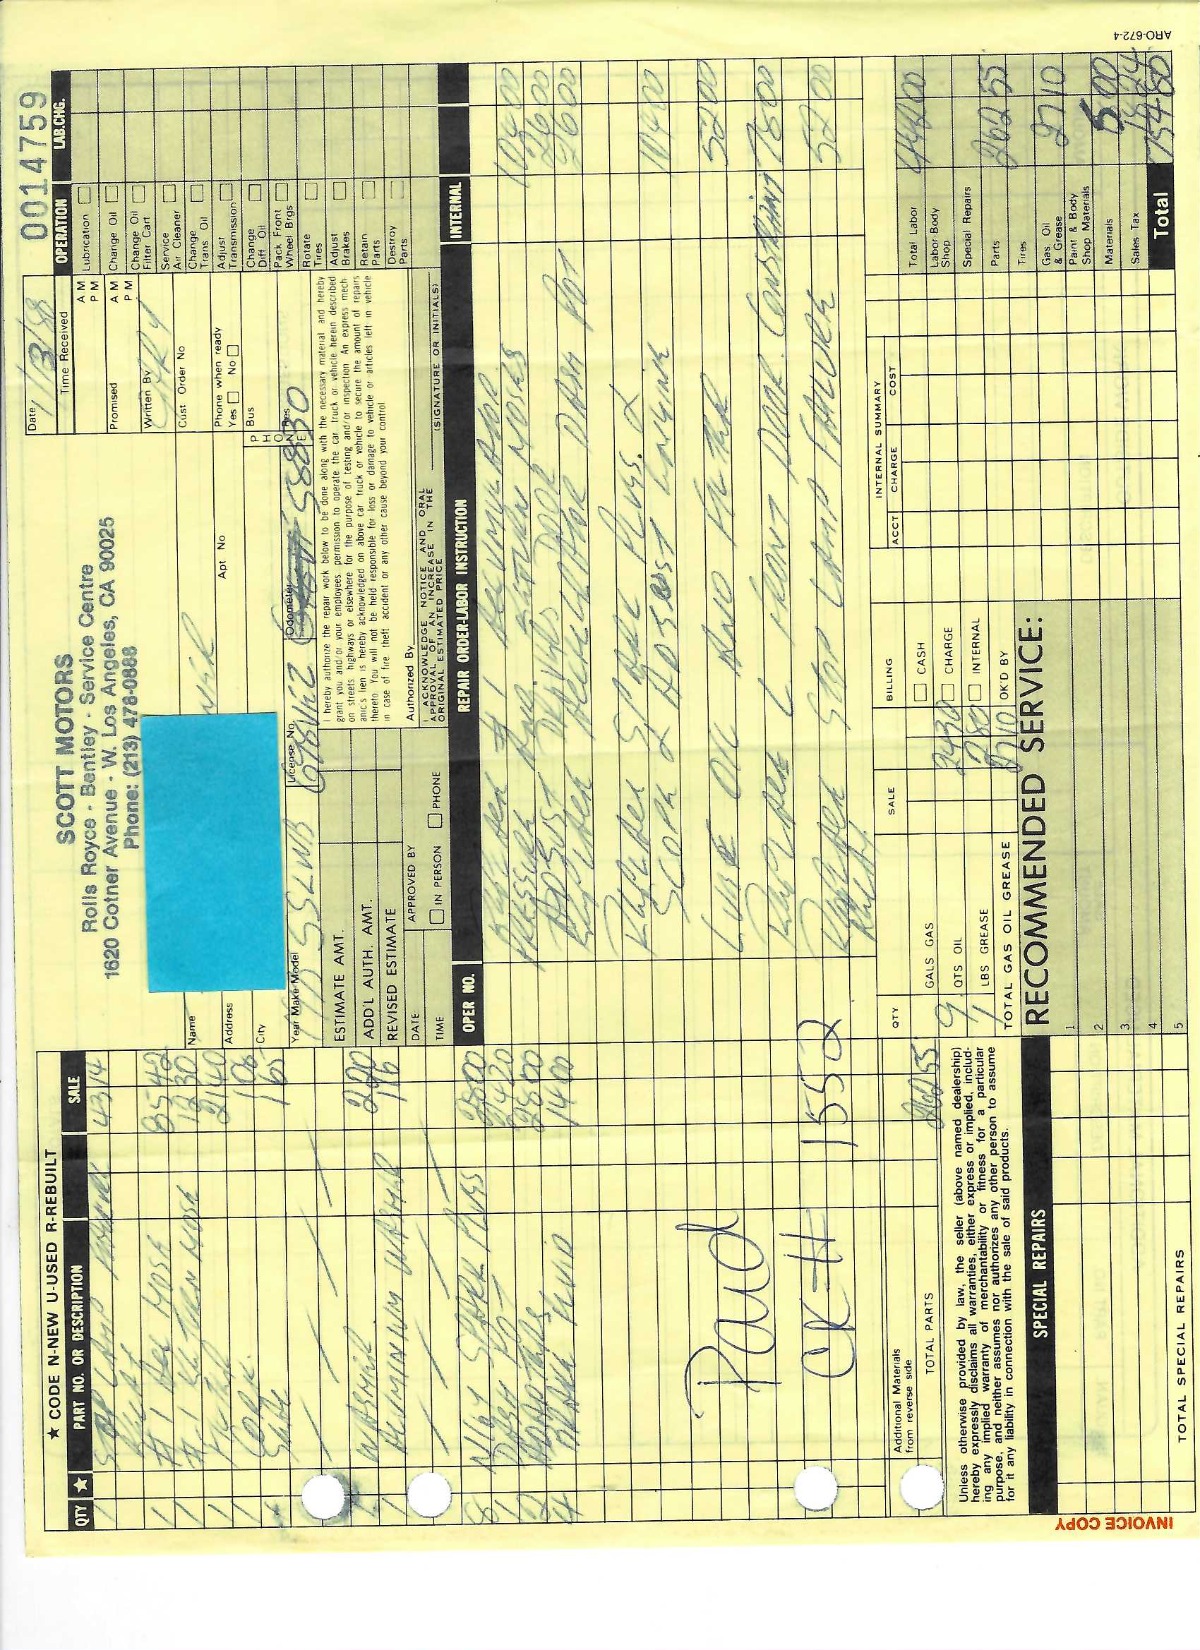 ARO-672-4
0014759
SCOTT MOTORS
Rolls Royce - Bentley - Service Centre
1620 Cotner Avenue - W. Los Angeles, CA 90025
Phone: (213) 478-0888
Date 1/3/88
Time Received A M P M
Promised A M P M
Written By
Cust Order No
Phone when ready
Yes No
Name
Address
Apt No
City
PHONE Bus
Res
Year Make-Model SSLWB
License No. 698VIZ
Odometer 58830
ESTIMATE AMT.
ADD'L AUTH. AMT.
REVISED ESTIMATE
DATE
TIME
APPROVED BY
IN PERSON PHONE
I hereby authorize the repair work below to be done along with the necessary material and hereby
grant you and/or your employees permission to operate the car, truck or vehicle herein described
on streets highways or elsewhere for the purpose of testing and/or inspection An express mech
anic's lien is hereby acknowledged on above car truck or vehicle to secure the amount of repairs
thereto You will not be held responsible for loss or damage to vehicle or articles left in vehicle
in case of fire theft accident or any other cause beyond your control
Authorized By
I ACKNOWLEDGE NOTICE AND ORAL
APPROVAL OF AN INCREASE IN THE
ORIGINAL ESTIMATED PRICE
(SIGNATURE OR INITIALS)
OPERATION LAB.CHG.
Lubrication
Change Oil
Change Oil Filter Cart
Service Air Cleaner
Change Trans Oil
Adjust Transmission
Change Diff Oil
Pack Front Wheel Brgs
Rotate Tires
Adjust Brakes
Retain Parts
Destroy Parts
★ CODE N-NEW U-USED R-REBUILT
QTY ★ PART NO. OR DESCRIPTION SALE
1 STOP LAMP 43 14
1 #1 ACC HOSE 85 42
1 #1 RETURN HOSE 12 30
1 21 40
1 1 06
1 1 65
1 WASHER 2 20
1 ALUMINUM WASHER 1 96
8 SPARK PLUGS 28 00
1 DASH POT 24 20
2 28 00
4 BRAKE FLUID 14 00
Paid
CK # 1552
Additional Materials
from reverse side
TOTAL PARTS 262 55
OPER NO. REPAIR ORDER-LABOR INSTRUCTION INTERNAL
#1 ACCUMULATOR
PRESSURE AND RETURN HOSES 104 00
ADJUST DRIVERS DOOR 26 00
ACCELERATOR DASH POT 26 00
SPARK PLUGS.
SCOPE & ADJUST ENGINE 104 00
LUBE OIL AND FILTER 52 00
FRONT DOOR 78 00
STOP LAMP FAILURE 52 00
QTY SALE
GALS GAS
9 QTS OIL 24 30
1 LBS GREASE 2 80
TOTAL GAS OIL GREASE 27 10
BILLING
CASH
CHARGE
INTERNAL
OK'D BY
INTERNAL SUMMARY
ACCT CHARGE COST
Total Labor 442 00
Labor Body Shop
Special Repairs
Parts 262 55
Tires
Gas, Oil & Grease 27 10
Paint & Body Shop Materials
Materials 5.00
Sales Tax
Total 754 80
Unless otherwise provided by law, the seller (above named dealership)
hereby expressly disclaims all warranties, either express or implied, includ-
ing any implied warranty of merchantability or fitness for a particular
purpose, and neither assumes nor authorizes any other person to assume
for it any liability in connection with the sale of said products.
SPECIAL REPAIRS
TOTAL SPECIAL REPAIRS
RECOMMENDED SERVICE:
1
2
3
4
5
INVOICE COPY